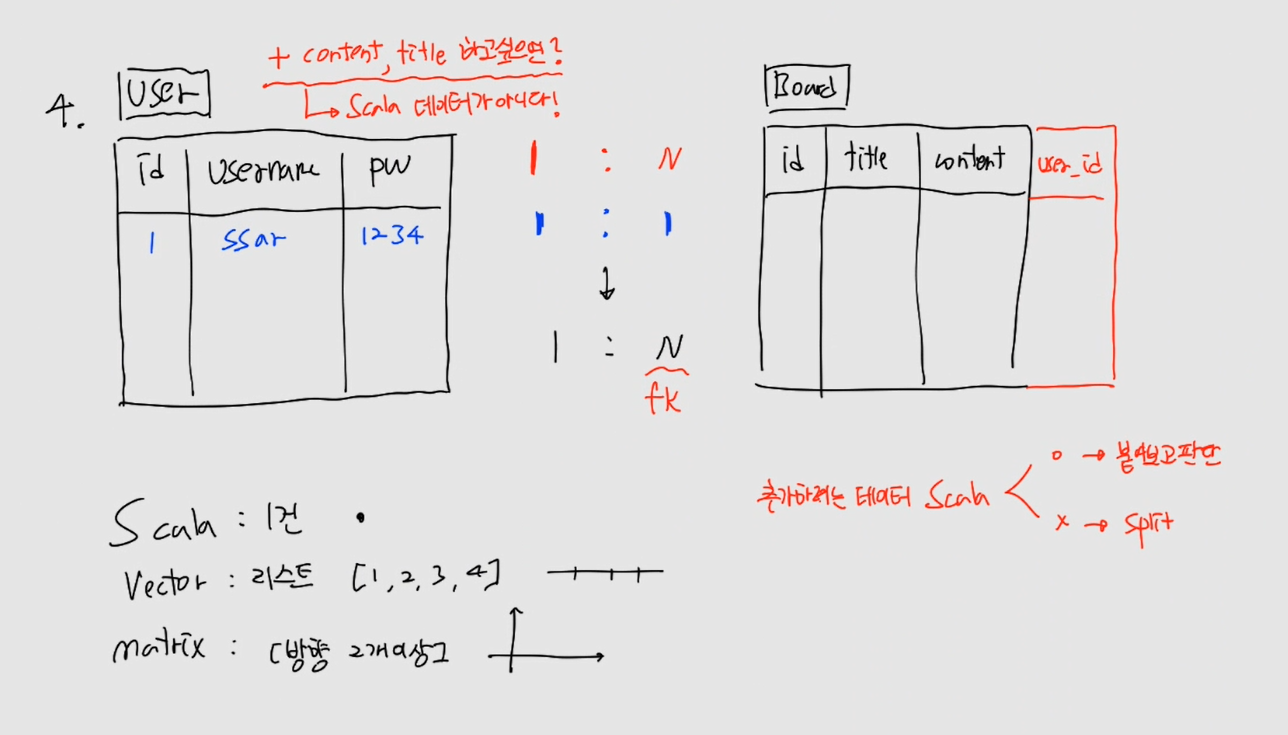 + content, title 하고싶으면?
→ Scala 데이터가 아니다!
4.
User
id username pw
1 ssar 1234
1 : N
1 : 1
↓
1 : N
fk
Board
id title content user_id
추가하려는 데이터 Scala
o →
x → split
Scala : 1건
Vector : 리스트 [1, 2, 3, 4]
matrix : [방향 2개이상]